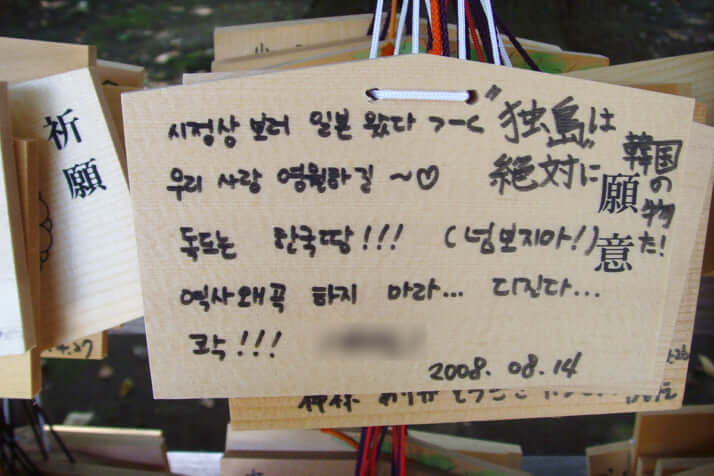 시정상 보러 일본 왔다 ㄱ-ㄷ
우리 사랑 영원하길 ~♡
독도는 한국땅!!! (넘보지마!)
역사왜곡 하지 마라... 디진다...
콱!!!
2008. 08. 14
"独島"は
絶対に
韓国の物だ!
願意
祈願